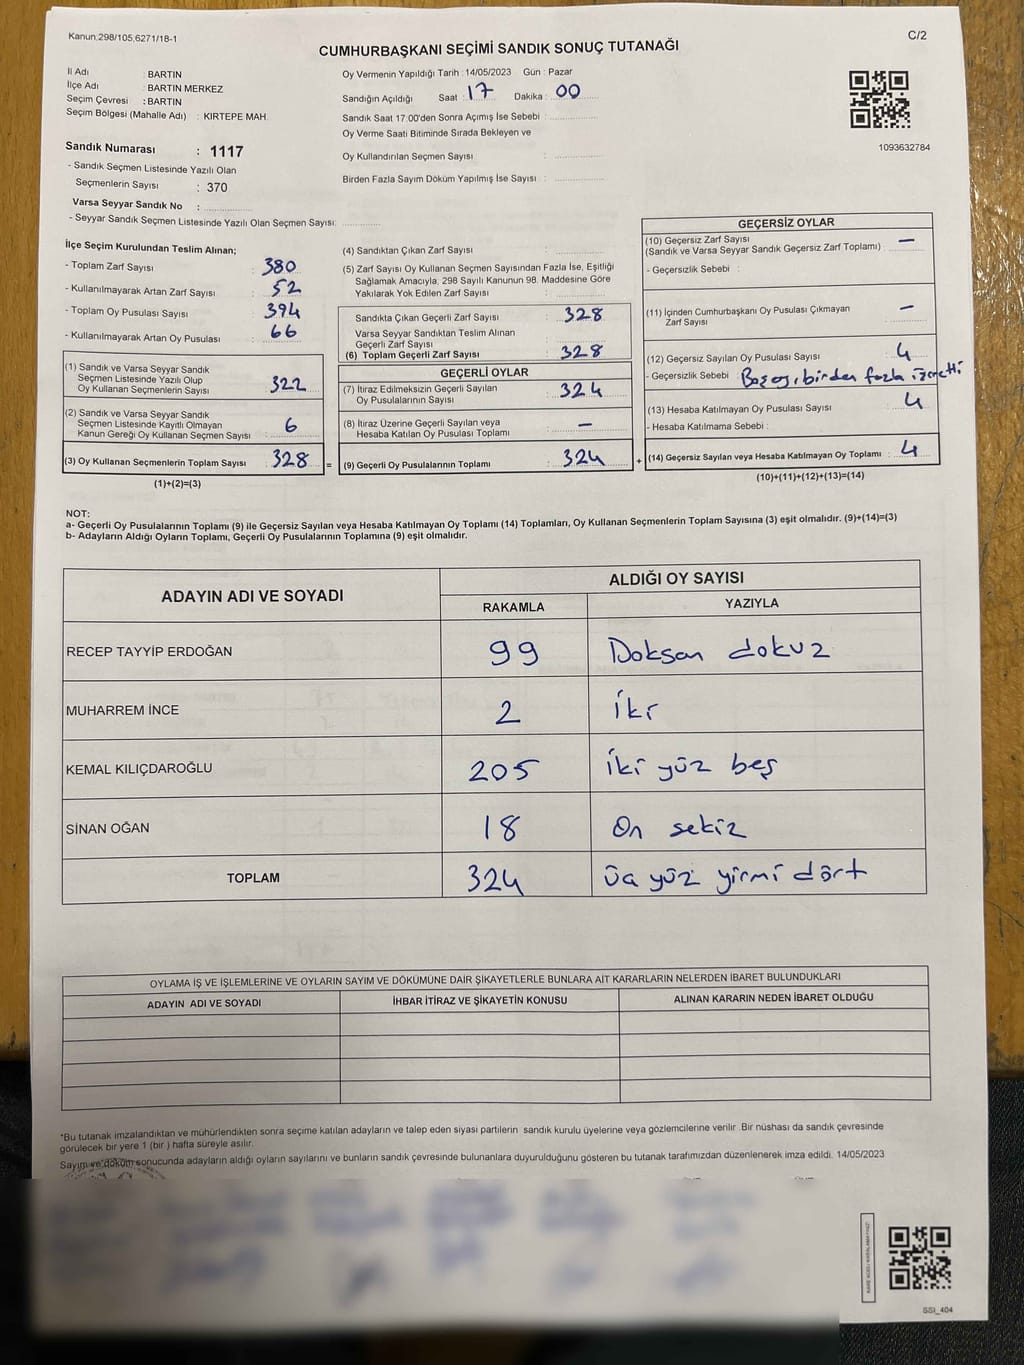 Kanun:298/105,6271/18-1
C/2
CUMHURBAŞKANI SEÇİMİ SANDIK SONUÇ TUTANAĞI
İl Adı : BARTIN
İlçe Adı : BARTIN MERKEZ
Seçim Çevresi : BARTIN
Seçim Bölgesi (Mahalle Adı) : KIRTEPE MAH.
Oy Vermenin Yapıldığı Tarih : 14/05/2023 Gün : Pazar
Sandığın Açıldığı Saat : 17 Dakika : 00
Sandık Saat 17:00'den Sonra Açımış İse Sebebi :
Oy Verme Saati Bitiminde Sırada Bekleyen ve
Oy Kullandırılan Seçmen Sayısı :
Birden Fazla Sayım Döküm Yapılmış İse Sayısı :
1093632784
Sandık Numarası : 1117
- Sandık Seçmen Listesinde Yazılı Olan
Seçmenlerin Sayısı : 370
Varsa Seyyar Sandık No :
- Seyyar Sandık Seçmen Listesinde Yazılı Olan Seçmen Sayısı:
İlçe Seçim Kurulundan Teslim Alınan;
- Toplam Zarf Sayısı : 380
- Kullanılmayarak Artan Zarf Sayısı : 52
- Toplam Oy Pusulası Sayısı : 394
- Kullanılmayarak Artan Oy Pusulası : 66
(1) Sandık ve Varsa Seyyar Sandık
Seçmen Listesinde Yazılı Olup
Oy Kullanan Seçmenlerin Sayısı : 322
(2) Sandık ve Varsa Seyyar Sandık
Seçmen Listesinde Kayıtlı Olmayan
Kanun Gereği Oy Kullanan Seçmen Sayısı : 6
(3) Oy Kullanan Seçmenlerin Toplam Sayısı : 328
(1)+(2)=(3)
(4) Sandıktan Çıkan Zarf Sayısı :
(5) Zarf Sayısı Oy Kullanan Seçmen Sayısından Fazla İse, Eşitliği
Sağlamak Amacıyla, 298 Sayılı Kanunun 98. Maddesine Göre
Yakılarak Yok Edilen Zarf Sayısı :
Sandıkta Çıkan Geçerli Zarf Sayısı : 328
Varsa Seyyar Sandıktan Teslim Alınan
Geçerli Zarf Sayısı :
(6) Toplam Geçerli Zarf Sayısı : 328
GEÇERLİ OYLAR
(7) İtiraz Edilmeksizin Geçerli Sayılan
Oy Pusulalarının Sayısı : 324
(8) İtiraz Üzerine Geçerli Sayılan veya
Hesaba Katılan Oy Pusulası Toplamı : –
= (9) Geçerli Oy Pusulalarının Toplamı : 324
GEÇERSİZ OYLAR
(10) Geçersiz Zarf Sayısı
(Sandık ve Varsa Seyyar Sandık Geçersiz Zarf Toplamı) : –
- Geçersizlik Sebebi :
(11) İçinden Cumhurbaşkanı Oy Pusulası Çıkmayan
Zarf Sayısı : –
(12) Geçersiz Sayılan Oy Pusulası Sayısı : 4
- Geçersizlik Sebebi : birden fazla
(13) Hesaba Katılmayan Oy Pusulası Sayısı : 4
- Hesaba Katılmama Sebebi :
+ (14) Geçersiz Sayılan veya Hesaba Katılmayan Oy Toplamı : 4
(10)+(11)+(12)+(13)=(14)
NOT:
a- Geçerli Oy Pusulalarının Toplamı (9) ile Geçersiz Sayılan veya Hesaba Katılmayan Oy Toplamı (14) Toplamları, Oy Kullanan Seçmenlerin Toplam Sayısına (3) eşit olmalıdır. (9)+(14)=(3)
b- Adayların Aldığı Oyların Toplamı, Geçerli Oy Pusulalarının Toplamına (9) eşit olmalıdır.
ADAYIN ADI VE SOYADI
ALDIĞI OY SAYISI
RAKAMLA YAZIYLA
RECEP TAYYİP ERDOĞAN 99 Doksan dokuz
MUHARREM İNCE 2 İki
KEMAL KILIÇDAROĞLU 205 İki yüz beş
SİNAN OĞAN 18 On sekiz
TOPLAM 324 üç yüz yirmi dört
OYLAMA İŞ VE İŞLEMLERİNE VE OYLARIN SAYIM VE DÖKÜMÜNE DAİR ŞİKAYETLERLE BUNLARA AİT KARARLARIN NELERDEN İBARET BULUNDUKLARI
ADAYIN ADI VE SOYADI İHBAR İTİRAZ VE ŞİKAYETİN KONUSU ALINAN KARARIN NEDEN İBARET OLDUĞU
*Bu tutanak imzalandıktan ve mühürlendikten sonra seçime katılan adayların ve talep eden siyasi partilerin sandık kurulu üyelerine veya gözlemcilerine verilir .Bir nüshası da sandık çevresinde
görülecek bir yere 1 (bir ) hafta süreyle asılır.
Sayım ve döküm sonucunda adayların aldığı oyların sayılarını ve bunların sandık çevresinde bulunanlara duyurulduğunu gösteren bu tutanak tarafımızdan düzenlenerek imza edildi. 14/05/2023
SSI_404